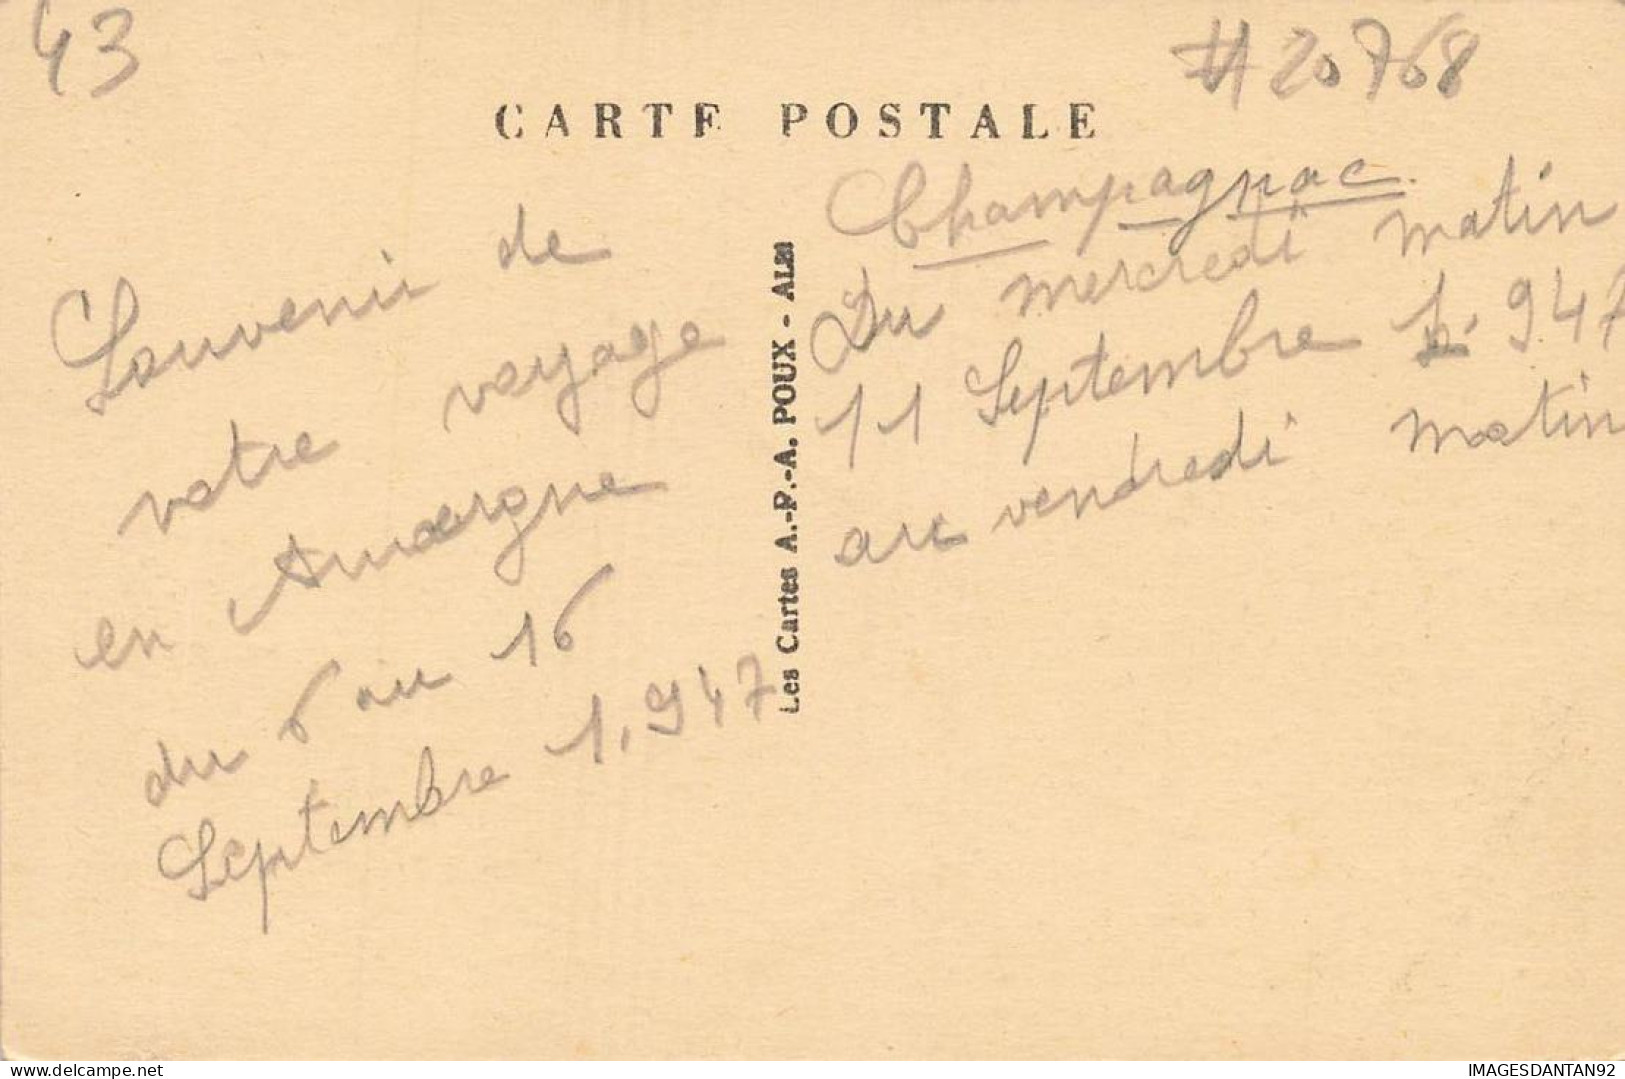 43
# 20768
CARTE POSTALE
Souvenir de
votre voyage
en Auvergne
du 6 au 16
Septembre 1.947
Les Cartes A.-P.-A. POUX - ALBI
Champagnac.
Du mercredi matin
11 Septembre 1.947
au vendredi matin
IMAGESDANTAN92